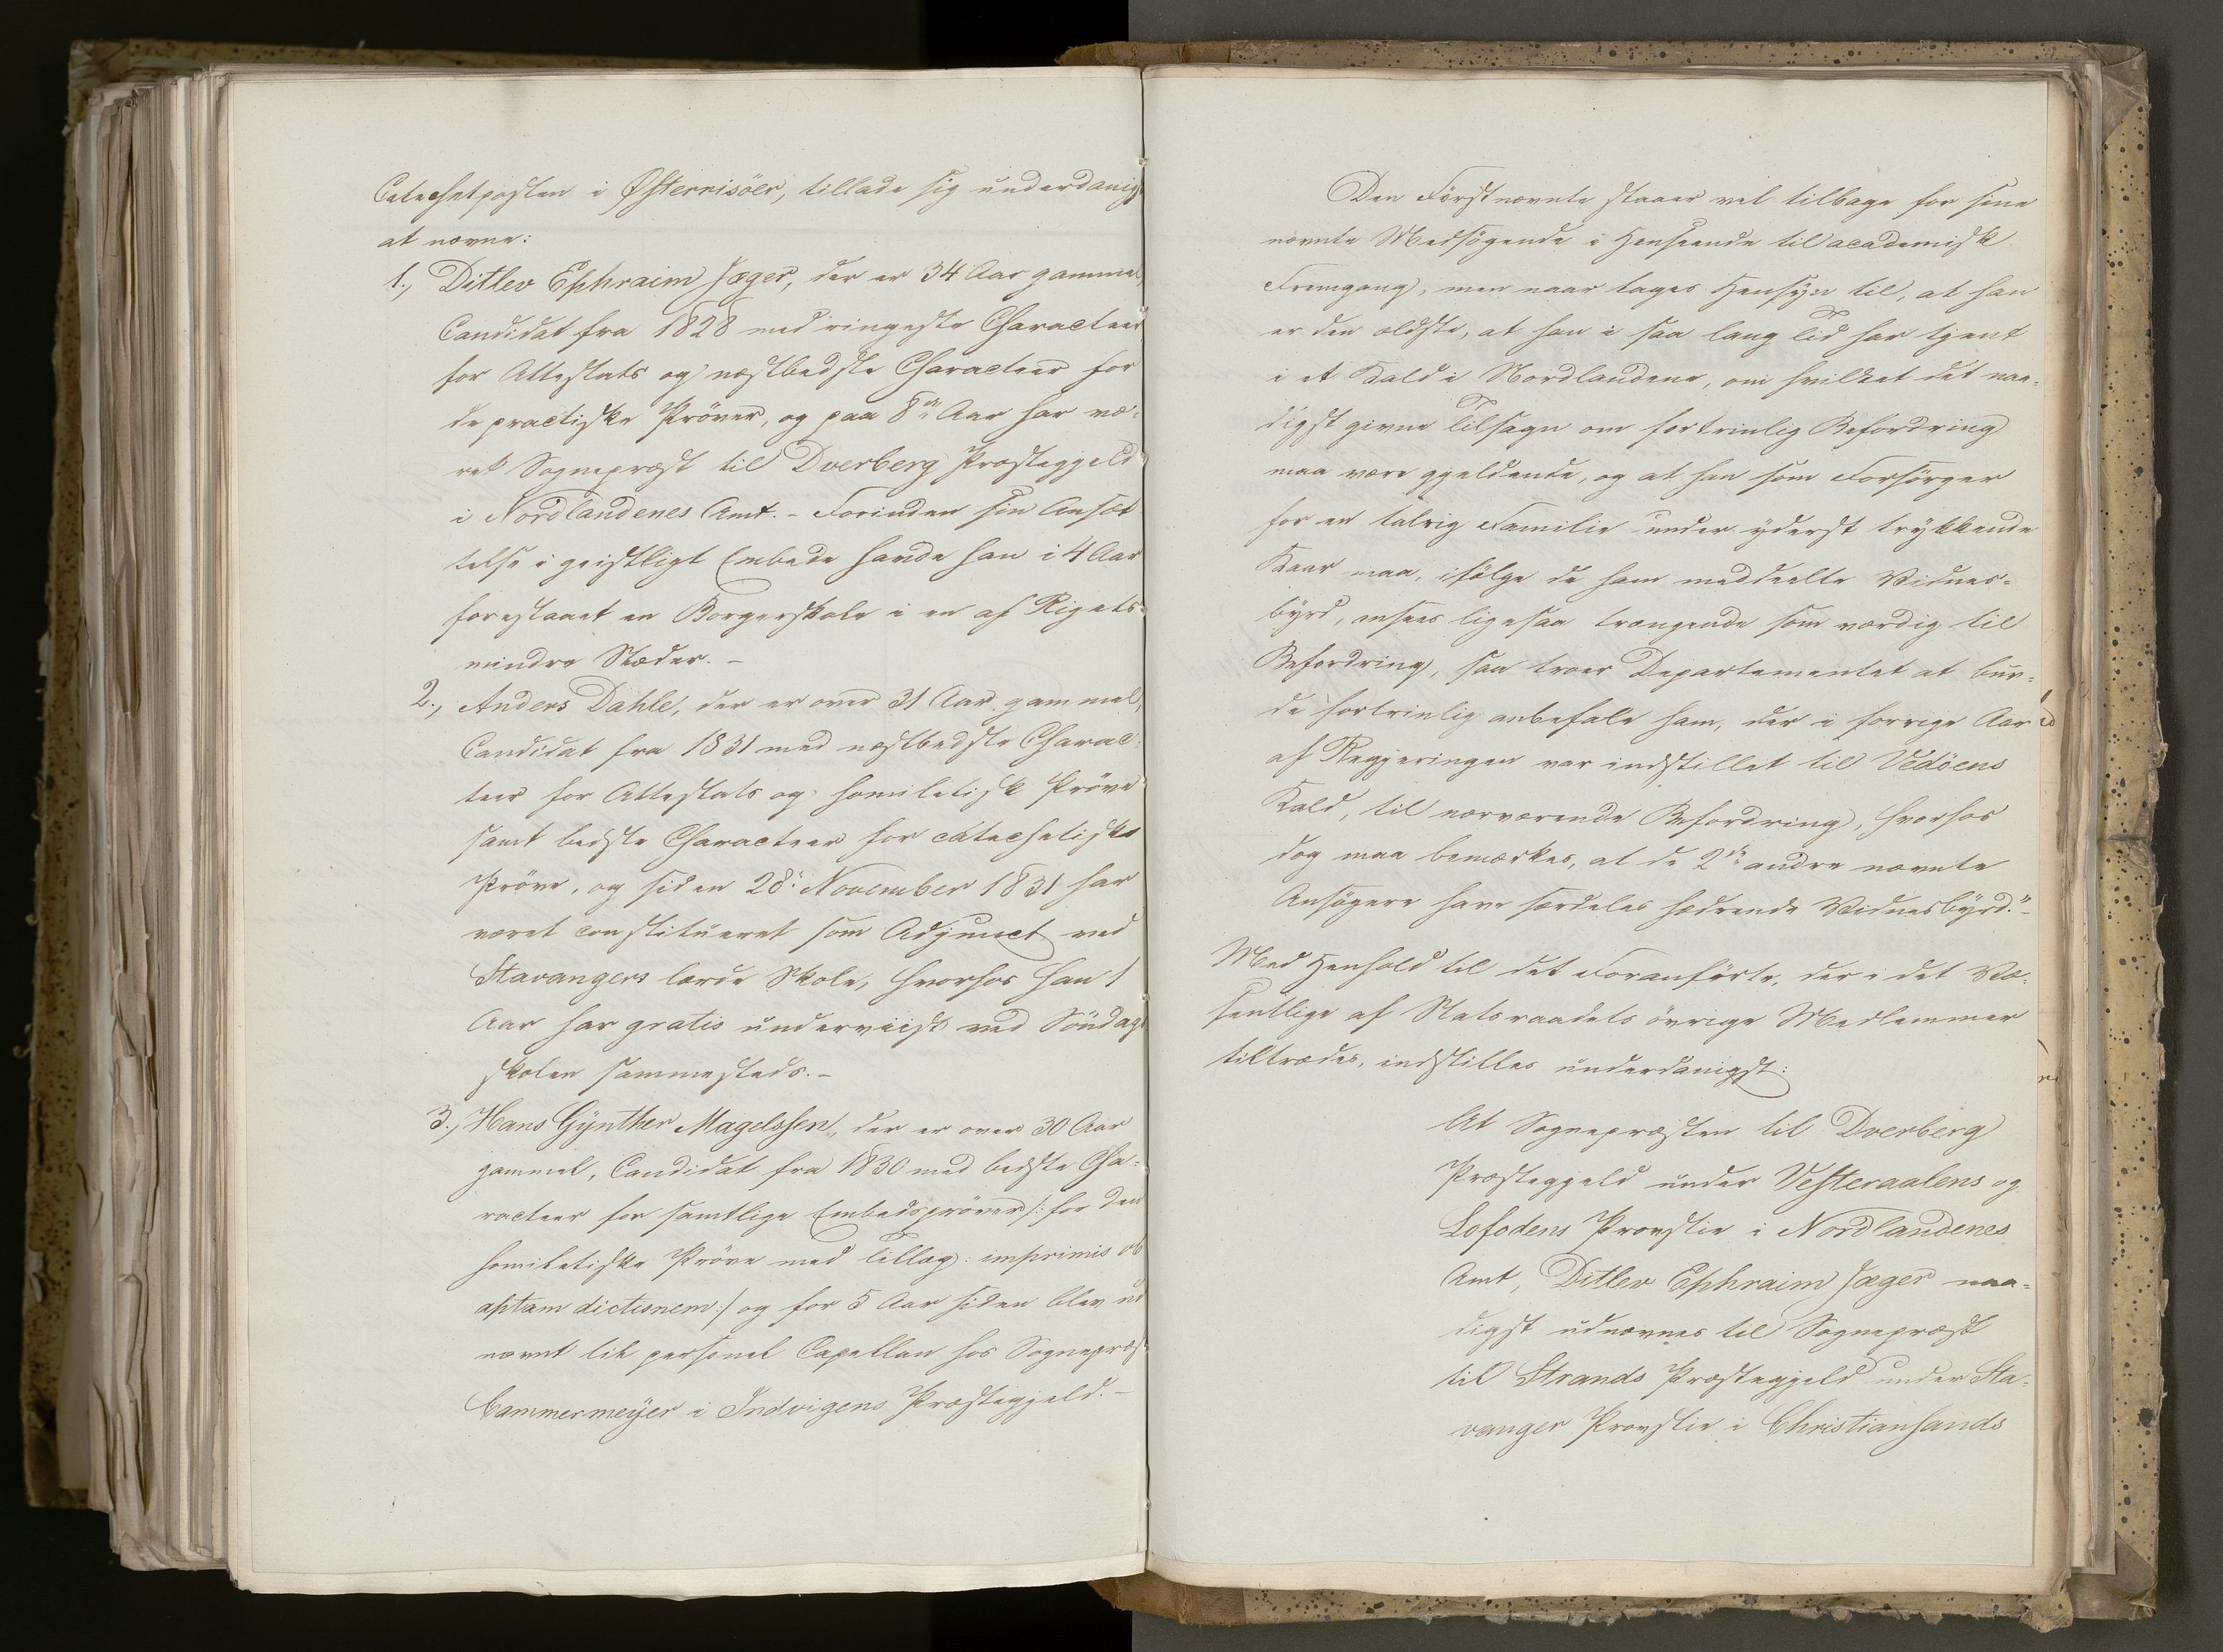 Catechetposten i Østerrisöer, tillade sig underdanigst
at nævne:
1., Ditlev Ephraim Jæger, der er 34 Aar gammel,
Candidat fra 1828 med ringeste Characteer
for Attestats og næstbedste Characteer for
de practiske Prøver, og paa 8de Aar har væ-
ret Sognepræst til Dverberg Præstegjeld
i Nordlandenes Amt. - Forinden sin Ansæt
telse i geistligt Embede havde han i 4 Aar
forestaaet en Borgerskole i en af Rigets
mindre Stæder. -
2., Anders Dahle, der er over 31 Aar gammel,
Candidat fra 1831 med næstbedste Charac-
teer for Attestats og homiletisk Pröve
samt bedste Characteer for catechetiske
Pröve, og siden 28: November 1831 har
været constitueret som Adjunct ved
Stavangers lærde Skole, hvorhos han 1
Aar har gratis underviist ved Söndags
skolen sammesteds. -
3., Hans Gynther Magelssen, der er over 30 Aar
gammel, Candidat fra 1830 med bedste Cha-
racteer for samtlige Embedsprøver /: for den
homiletiske Pröve med Tillæg: imprimis ob
aptam dictionem :/ og for 5 Aar siden blev ud
nævnt til personel Capellan hos Sognepræst
Cammermeÿer i Indvigens Præstegjeld. -
Den Förstnævnte staaer vel tilbage for sine
nævnte Medsögende i Henseende til academisk
Fremgang, men naar tages Hensyn til, at han
er den ældste, at han i saa lang Tid har tjent
i et Kald i Nordlandene, om hvilket det naa-
digst givne Tilsagn om fortrinlig Befordring
maa være gjeldende, og at han som Forsörger
for en talrig Familie under yderst trykkende
Kaar maa, ifölge de ham meddeelte Vidnes-
byrd, ansees ligesaa trængende som værdig til
Befordring, saa troer Departementet at bur-
de fortrinlig anbefale ham, der i forrige Aar
af Regjeringen var indstillet til Vedöens
Kald, til nærværende Befordring, hvorhos
dog maa bemærkes, at de 2de andre nævnte
Ansögere have særdeles hædrende Vidnesbyrd." -
Med Henhold til det Foranförte, der i det Væ-
sentlige af Statsraadets övrige Medlemmer
tiltrædes, indstilles underdanigst:
At Sognepræsten til Dverberg
Præstegjeld under Vesteraalens og
Lofodens Provstie i Nordlandenes
Amt, Ditlev Ephraim Jæger naa-
digst udnævnes til Sognepræst
til Strands Præstegjeld under Sta-
vanger Provstie i Christiansands